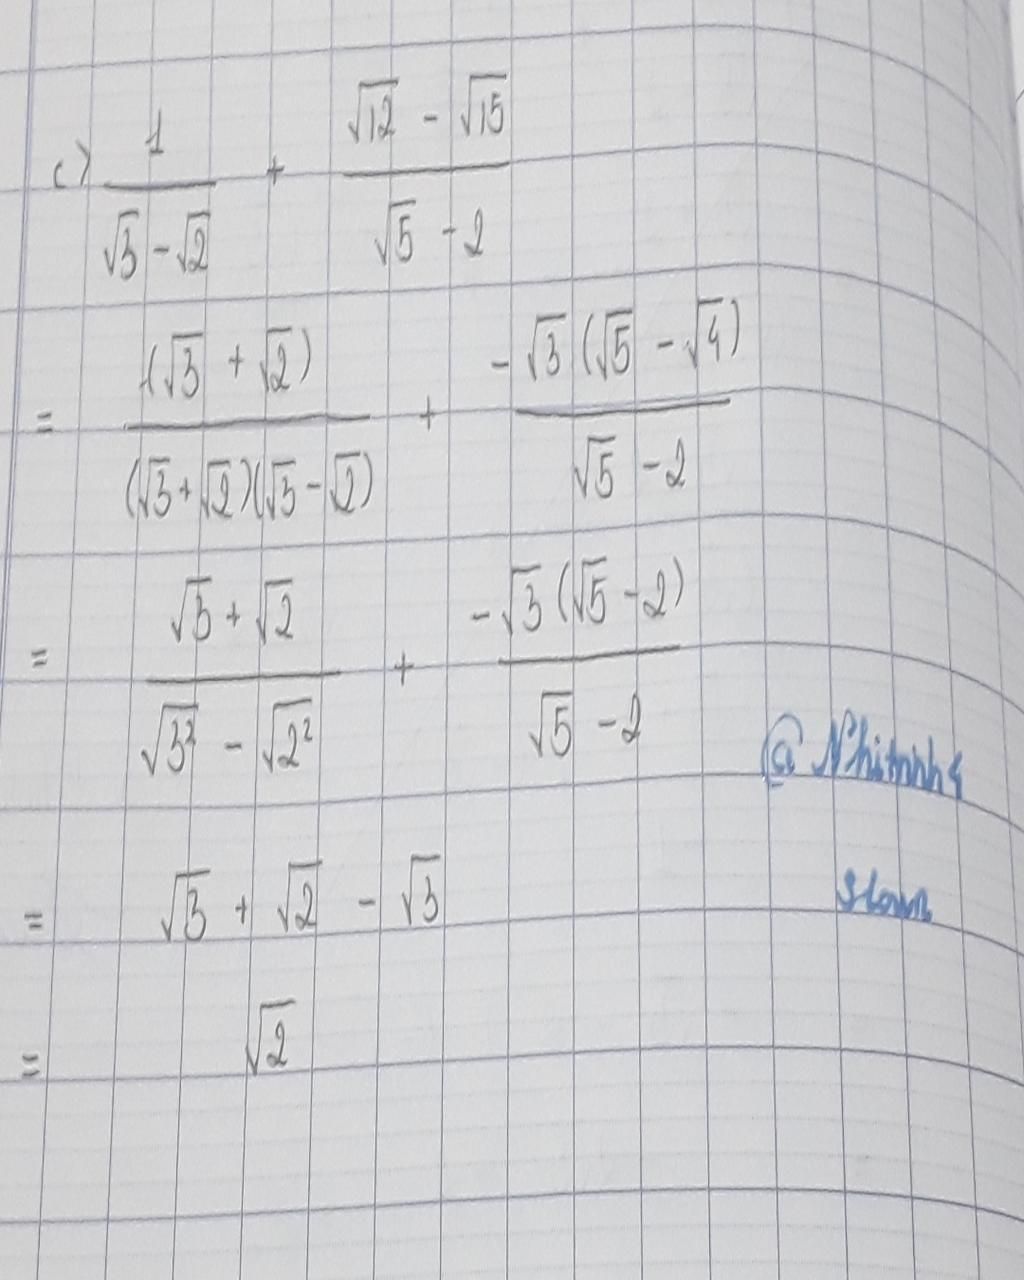 c) \frac{1}{\sqrt{3} - \sqrt{2}} + \frac{\sqrt{12} - \sqrt{15}}{\sqrt{5} - 2}
= \frac{1(\sqrt{3} + \sqrt{2})}{(\sqrt{3} + \sqrt{2})(\sqrt{3} - \sqrt{2})} + \frac{-\sqrt{3}(\sqrt{5} - \sqrt{4})}{\sqrt{5} - 2}
= \frac{\sqrt{3} + \sqrt{2}}{\sqrt{3^2} - \sqrt{2^2}} + \frac{-\sqrt{3}(\sqrt{5} - 2)}{\sqrt{5} - 2}
= \sqrt{3} + \sqrt{2} - \sqrt{3}
= \sqrt{2}